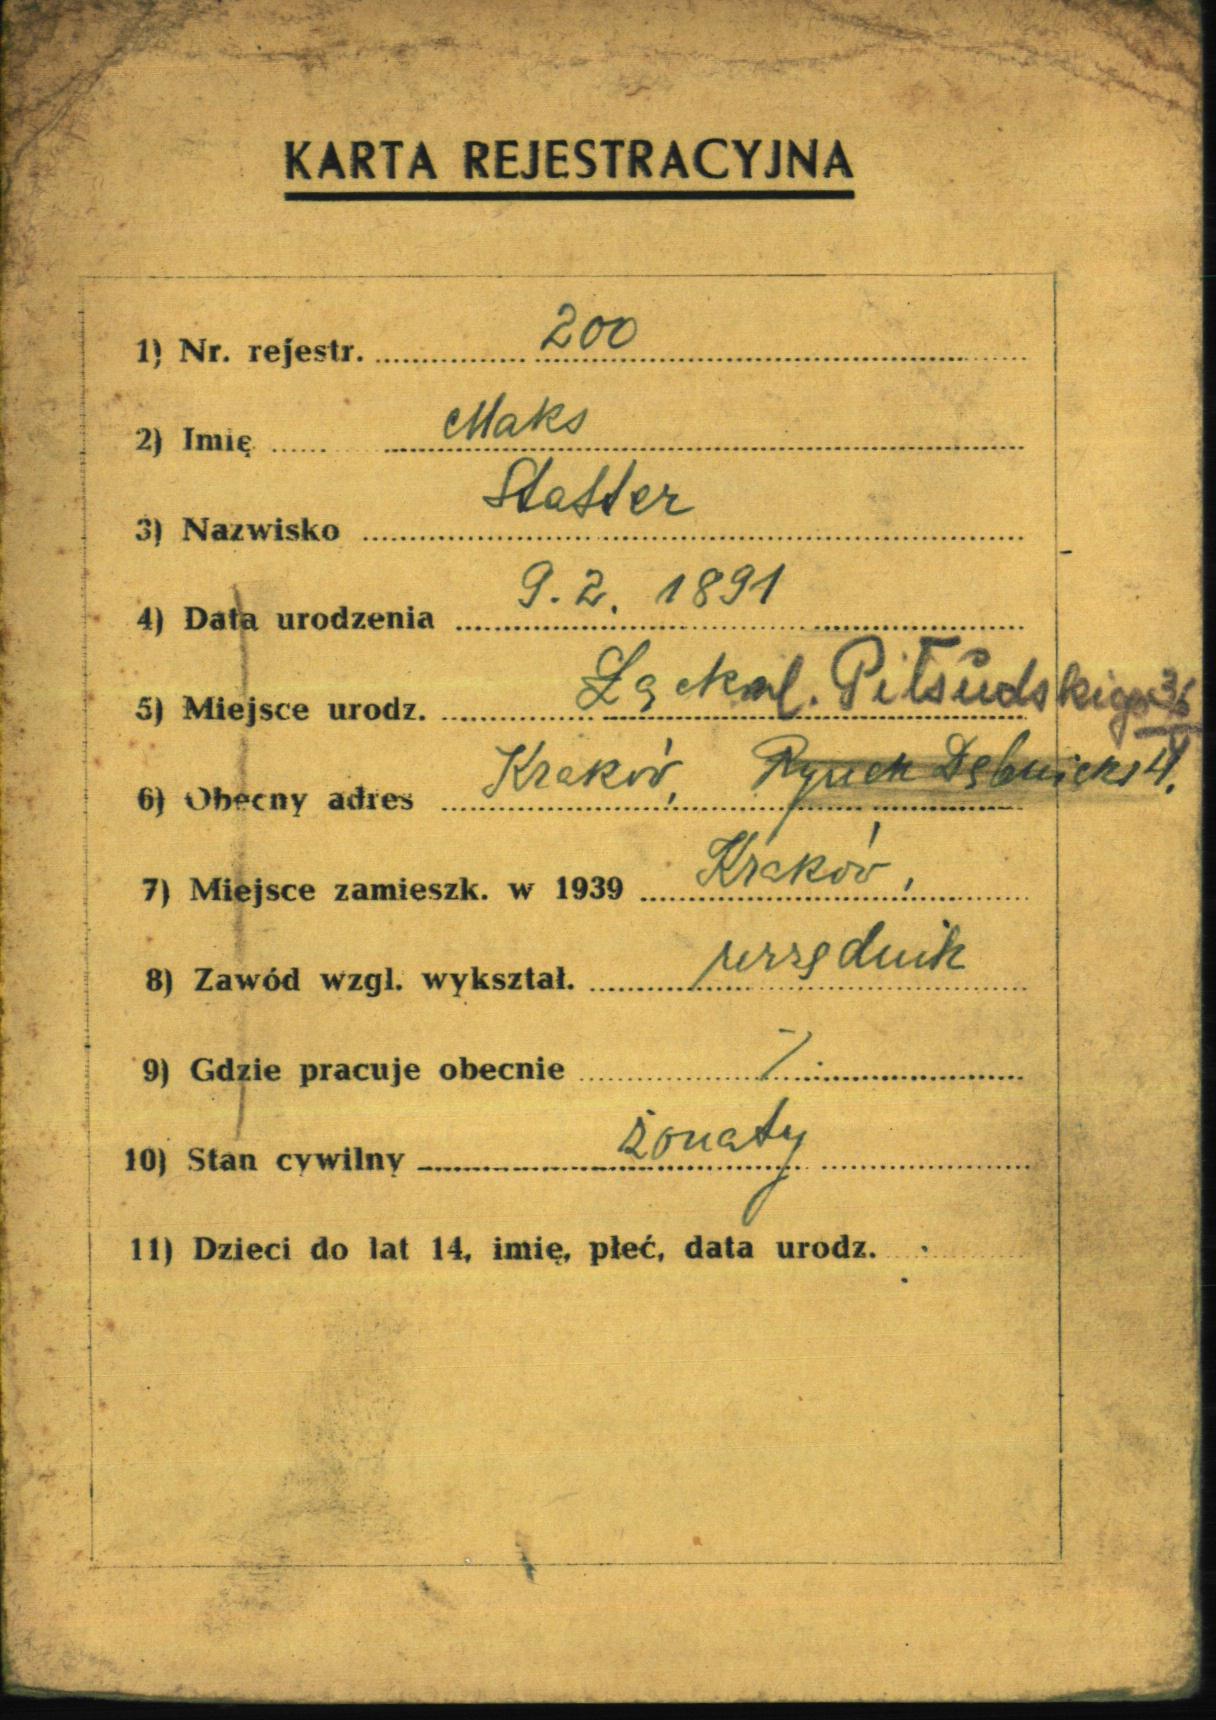 KARTA REJESTRACYJNA
1) Nr. rejestr. 200
2) Imię Maks
3) Nazwisko Statter
4) Data urodzenia 9.2. 1891
5) Miejsce urodz. Łącko ul. Piłsudskiego 36
6) Obecny adres Kraków, Rynek Dębnicki 4.
7) Miejsce zamieszk. w 1939 Kraków,
8) Zawód wzgl. wykształ. urzędnik
9) Gdzie pracuje obecnie
10) Stan cywilny żonaty
11) Dzieci do lat 14, imię, płeć, data urodz.